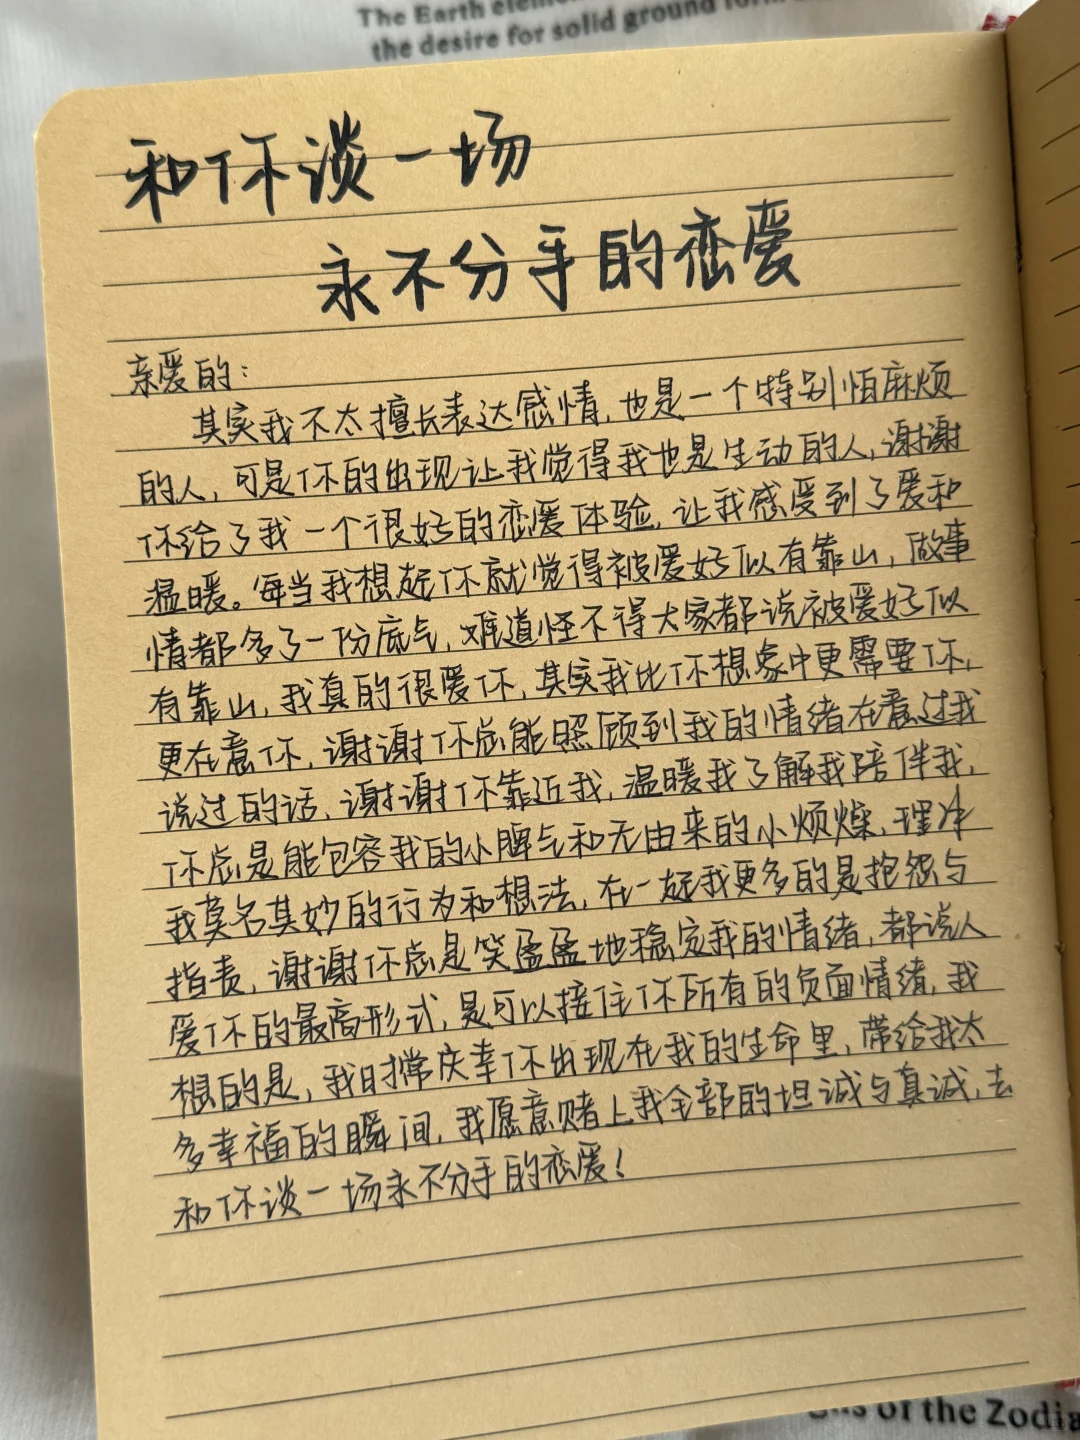 The Earth elem
the desire for solid ground form
和你谈一场
永不分手的恋爱
亲爱的：
其实我不太擅长表达感情，也是一个特别怕麻烦
的人，可是你的出现让我觉得我也是生动的人，谢谢
你给了我一个很好的恋爱体验，让我感受到了爱和
温暖。每当我想起你就觉得被爱好似有靠山，做事
情都多了一份底气，难道怪不得大家都说被爱好似
有靠山，我真的很爱你，其实我比你想象中更需要你，
更在意你，谢谢你总能照顾到我的情绪在意过我
说过的话，谢谢你靠近我，温暖我了解我陪伴我，
你总是能包容我的小脾气和无由来的小烦燥，理净
我莫名其妙的行为和想法，在一起我更多的是抱怨与
指责，谢谢你总是笑盈盈地稳定我的情绪，都说人
爱你的最高形式，是可以接住你所有的负面情绪，我
想的是，我时常庆幸你出现在我的生命里，带给我太
多幸福的瞬间，我愿意赌上我全部的坦诚与真诚，去
和你谈一场永不分手的恋爱！
of the Zodia